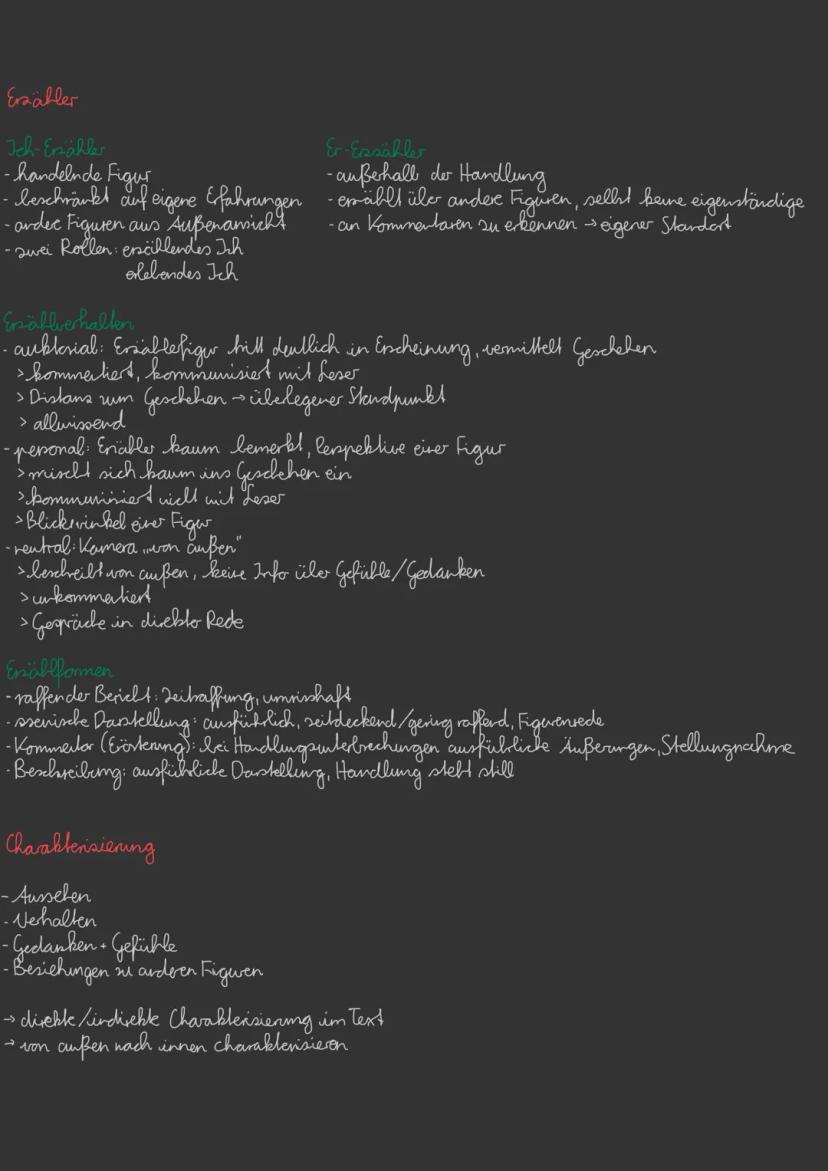 Erzähler
Ich-Erzähler
- handelnde Figur
- beschränkt auf eigene Erfahrungen
- andere Figuren aus Außenansicht
- zwei Rollen: erzählendes Ich
erlebendes Ich
Er-Erzähler
- außerhalb der Handlung
- erzählt über andere Figuren, selbst keine eigenständige
- an Kommentaren zu erkennen → eigener Standort
Erzählverhalten
- auktorial: Erzählefigur tritt deutlich in Erscheinung, vermittelt Geschehen
> kommentiert, kommuniziert mit Leser
> Distanz zum Geschehen → überlegener Standpunkt
> allwissend
- personal: Erzähler kaum bemerkt, Perspektive einer Figur
> mischt sich kaum ins Geschehen ein
> kommuniziert nicht mit Leser
> Blickwinkel einer Figur
- neutral: Kamera „von außen"
> beschreibt von außen, keine Info über Gefühle/Gedanken
> unkommentiert
> Gespräche in direkter Rede
Erzählformen
- raffender Bericht: Zeitraffung, umrisshaft
- szenische Darstellung: ausführlich, zeitdeckend/gering raffend, Figurenrede
- Kommentar (Erörterung): bei Handlungsunterbrechungen ausführliche Äußerungen, Stellungnahme
- Beschreibung: ausführliche Darstellung, Handlung steht still
Charakterisierung
- Aussehen
- Verhalten
- Gedanken + Gefühle
- Beziehungen zu anderen Figuren
→ direkte/indirekte Charakterisierung im Text
→ von außen nach innen charakterisieren